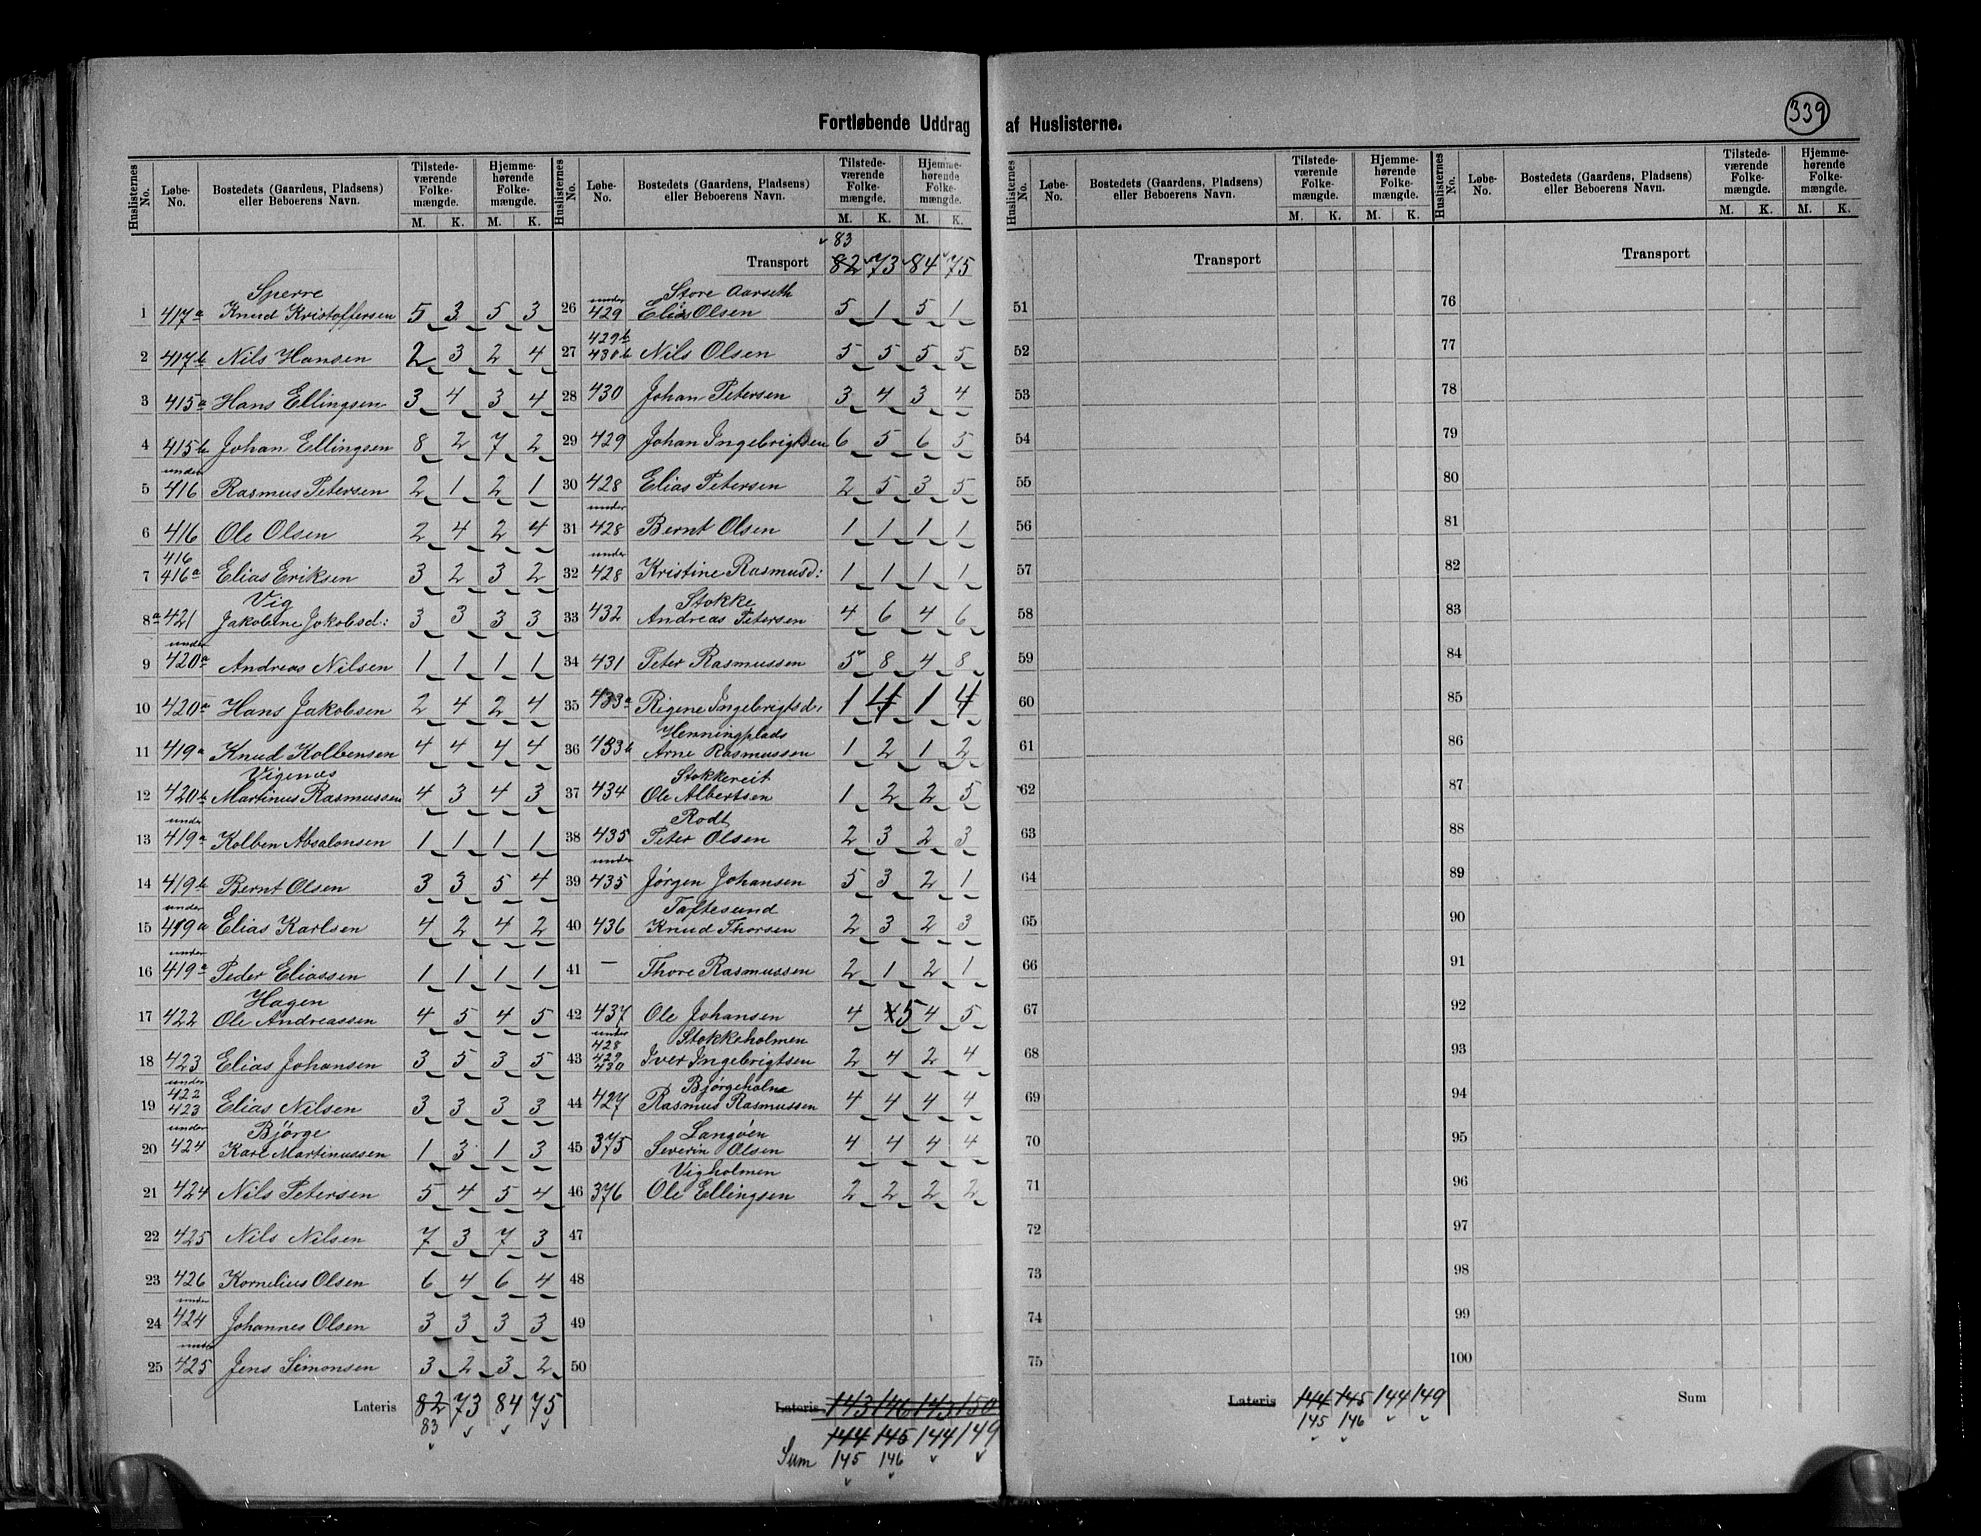 339
Fortløbende Uddrag af Huslisterne.
Huslisternes No. Løbe-No. Bostedets (Gaardens, Pladsens) eller Beboerens Navn. Tilstedeværende Folkemængde. M. K. Hjemmehørende Folkemængde. M. K.
Sperre
1 417a Knud Kristoffersen 5 3 5 3
2 417b Nils Hansen 2 3 2 4
3 415a Hans Ellingsen 3 4 3 4
4 415b Johan Ellingsen 8 2 7 2
5 under 416 Rasmus Petersen 2 1 2 1
6 416 Ole Olsen 2 4 2 4
7 416 416a Elias Eriksen 3 2 3 2
Vig
8a 421 Jakobine Jakobsd: 3 3 3 3
9 under 420a Andreas Nilsen 1 1 1 1
10 420a Hans Jakobsen 2 4 2 4
11 419a Knud Kolbensen 4 4 4 4
Vigenæs
12 420b Martinus Rasmussen 4 3 4 3
13 under 419a Kolben Absalonsen 1 1 1 1
14 419b Bernt Olsen 3 3 5 4
15 under 419a Elias Karlsen 4 2 4 2
16 under 419a Peder Eliassen 1 1 1 1
Hagen
17 422 Ole Andreassen 4 5 4 5
18 423 Elias Johansen 3 5 3 5
19 under 422 423 Elias Nilsen 3 3 3 3
Bjørge
20 under 424 Karl Martinussen 1 3 1 3
21 424 Nils Petersen 5 4 5 4
22 425 Nils Nilsen 7 3 7 3
23 426 Kornelius Olsen 6 4 6 4
24 under 424 Johannes Olsen 3 3 3 3
25 under 425 Jens Simonsen 3 2 3 2
Lateris 82 73 84 75
83
Huslisternes No. Løbe-No. Bostedets (Gaardens, Pladsens) eller Beboerens Navn. Tilstedeværende Folkemængde. M. K. Hjemmehørende Folkemængde. M. K.
83
Transport 82 73 84 75
Store Aarseth
26 under 429 Elias Olsen 5 1 5 1
27 429b 430b Nils Olsen 5 5 5 5
28 430 Johan Petersen 3 4 3 4
29 429 Johan Ingebrigtsen 6 5 6 5
30 428 Elias Petersen 2 5 3 5
31 under 428 Bernt Olsen 1 1 1 1
32 under 428 Kristine Rasmusd: 1 1 1 1
Stokke
33 432 Andreas Petersen 4 6 4 6
34 431 Peter Rasmussen 5 8 4 8
35 433a Rigene Ingebrigtsd: 1 4 1 4
Henningplads
36 433b Arne Rasmussen 1 2 1 2
Stokkereit
37 434 Ole Albertsen 1 2 2 5
Rodt
38 435 Peter Olsen 2 3 2 3
39 under 435 Jørgen Johansen 5 3 2 1
Taftesund
40 436 Knud Thorsen 2 3 2 3
41 — Thore Rasmussen 2 1 2 1
42 437 Ole Johansen 4 5 4 5
Stokkeholmen
43 under 428 429 430 Iver Ingebrigtsen 2 4 2 4
Bjørgeholm
44 427 Rasmus Rasmussen 4 4 4 4
Langøen
45 375 Severin Olsen 4 4 4 4
Vigholmen
46 376 Ole Ellingsen 2 2 2 2
47
48
49
50
Lateris 143 146 143 150
144 145 144 149
Sum 145 146
Huslisternes No. Løbe-No. Bostedets (Gaardens, Pladsens) eller Beboerens Navn. Tilstedeværende Folkemængde. M. K. Hjemmehørende Folkemængde. M. K.
Transport
51
52
53
54
55
56
57
58
59
60
61
62
63
64
65
66
67
68
69
70
71
72
73
74
75
Lateris 144 145 144 149
145 146
Huslisternes No. Løbe-No. Bostedets (Gaardens, Pladsens) eller Beboerens Navn. Tilstedeværende Folkemængde. M. K. Hjemmehørende Folkemængde. M. K.
Transport
76
77
78
79
80
81
82
83
84
85
86
87
88
89
90
91
92
93
94
95
96
97
98
99
100
Sum